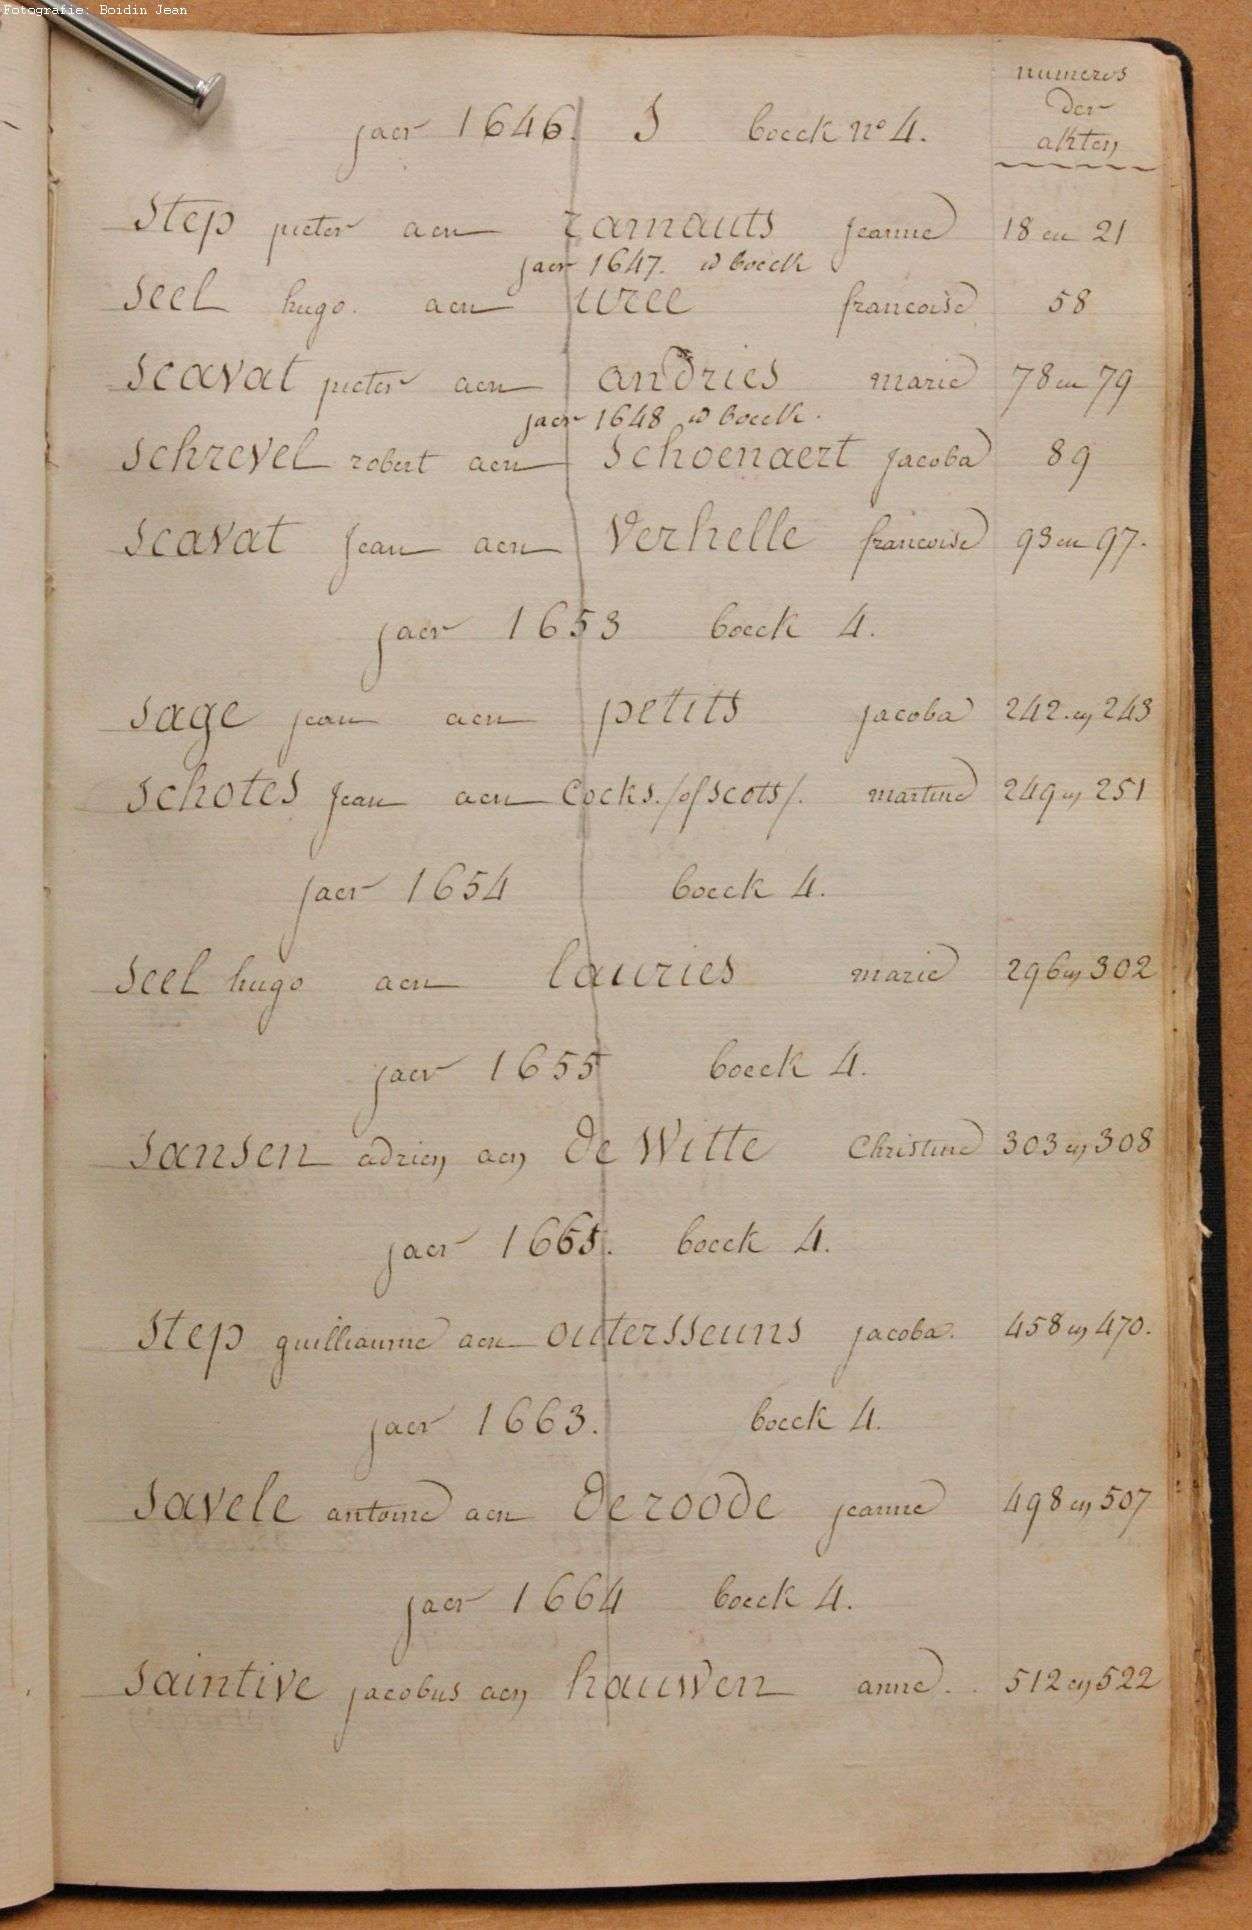 Fotografie: Boidin Jean
numeros
der
akten
jaer 1646. S boeck nº 4.
Step pieter aen ramauts jeanne 18 en 21
jaer 1647. boeck
Seel hugo. aen uree francoise 58
Scavat pieter aen andries marie 78 en 79
jaer 1648 boeck.
Schrevel robert aen Schoenaert jacoba 89
Scavat jean aen Verhelle francoise 93 en 97.
jaer 1653 boeck 4.
Sage jean aen petits jacoba 242. en 243
Schotes jean aen Cocks. /of Scots/. martine 249 en 251
jaer 1654 boeck 4.
Seel hugo aen lauries marie 296 en 302
jaer 1655 boeck 4.
Sansen adrien aen de Witte Christine 303 en 308
jaer 1661. boeck 4.
Step guilliaume aen outersseuns jacoba. 458 en 470.
jaer 1663. boeck 4.
Savele antoine aen de roode jeanne 498 en 507
jaer 1664 boeck 4.
Saintive jacobus aen hauwen anne. 512 en 522